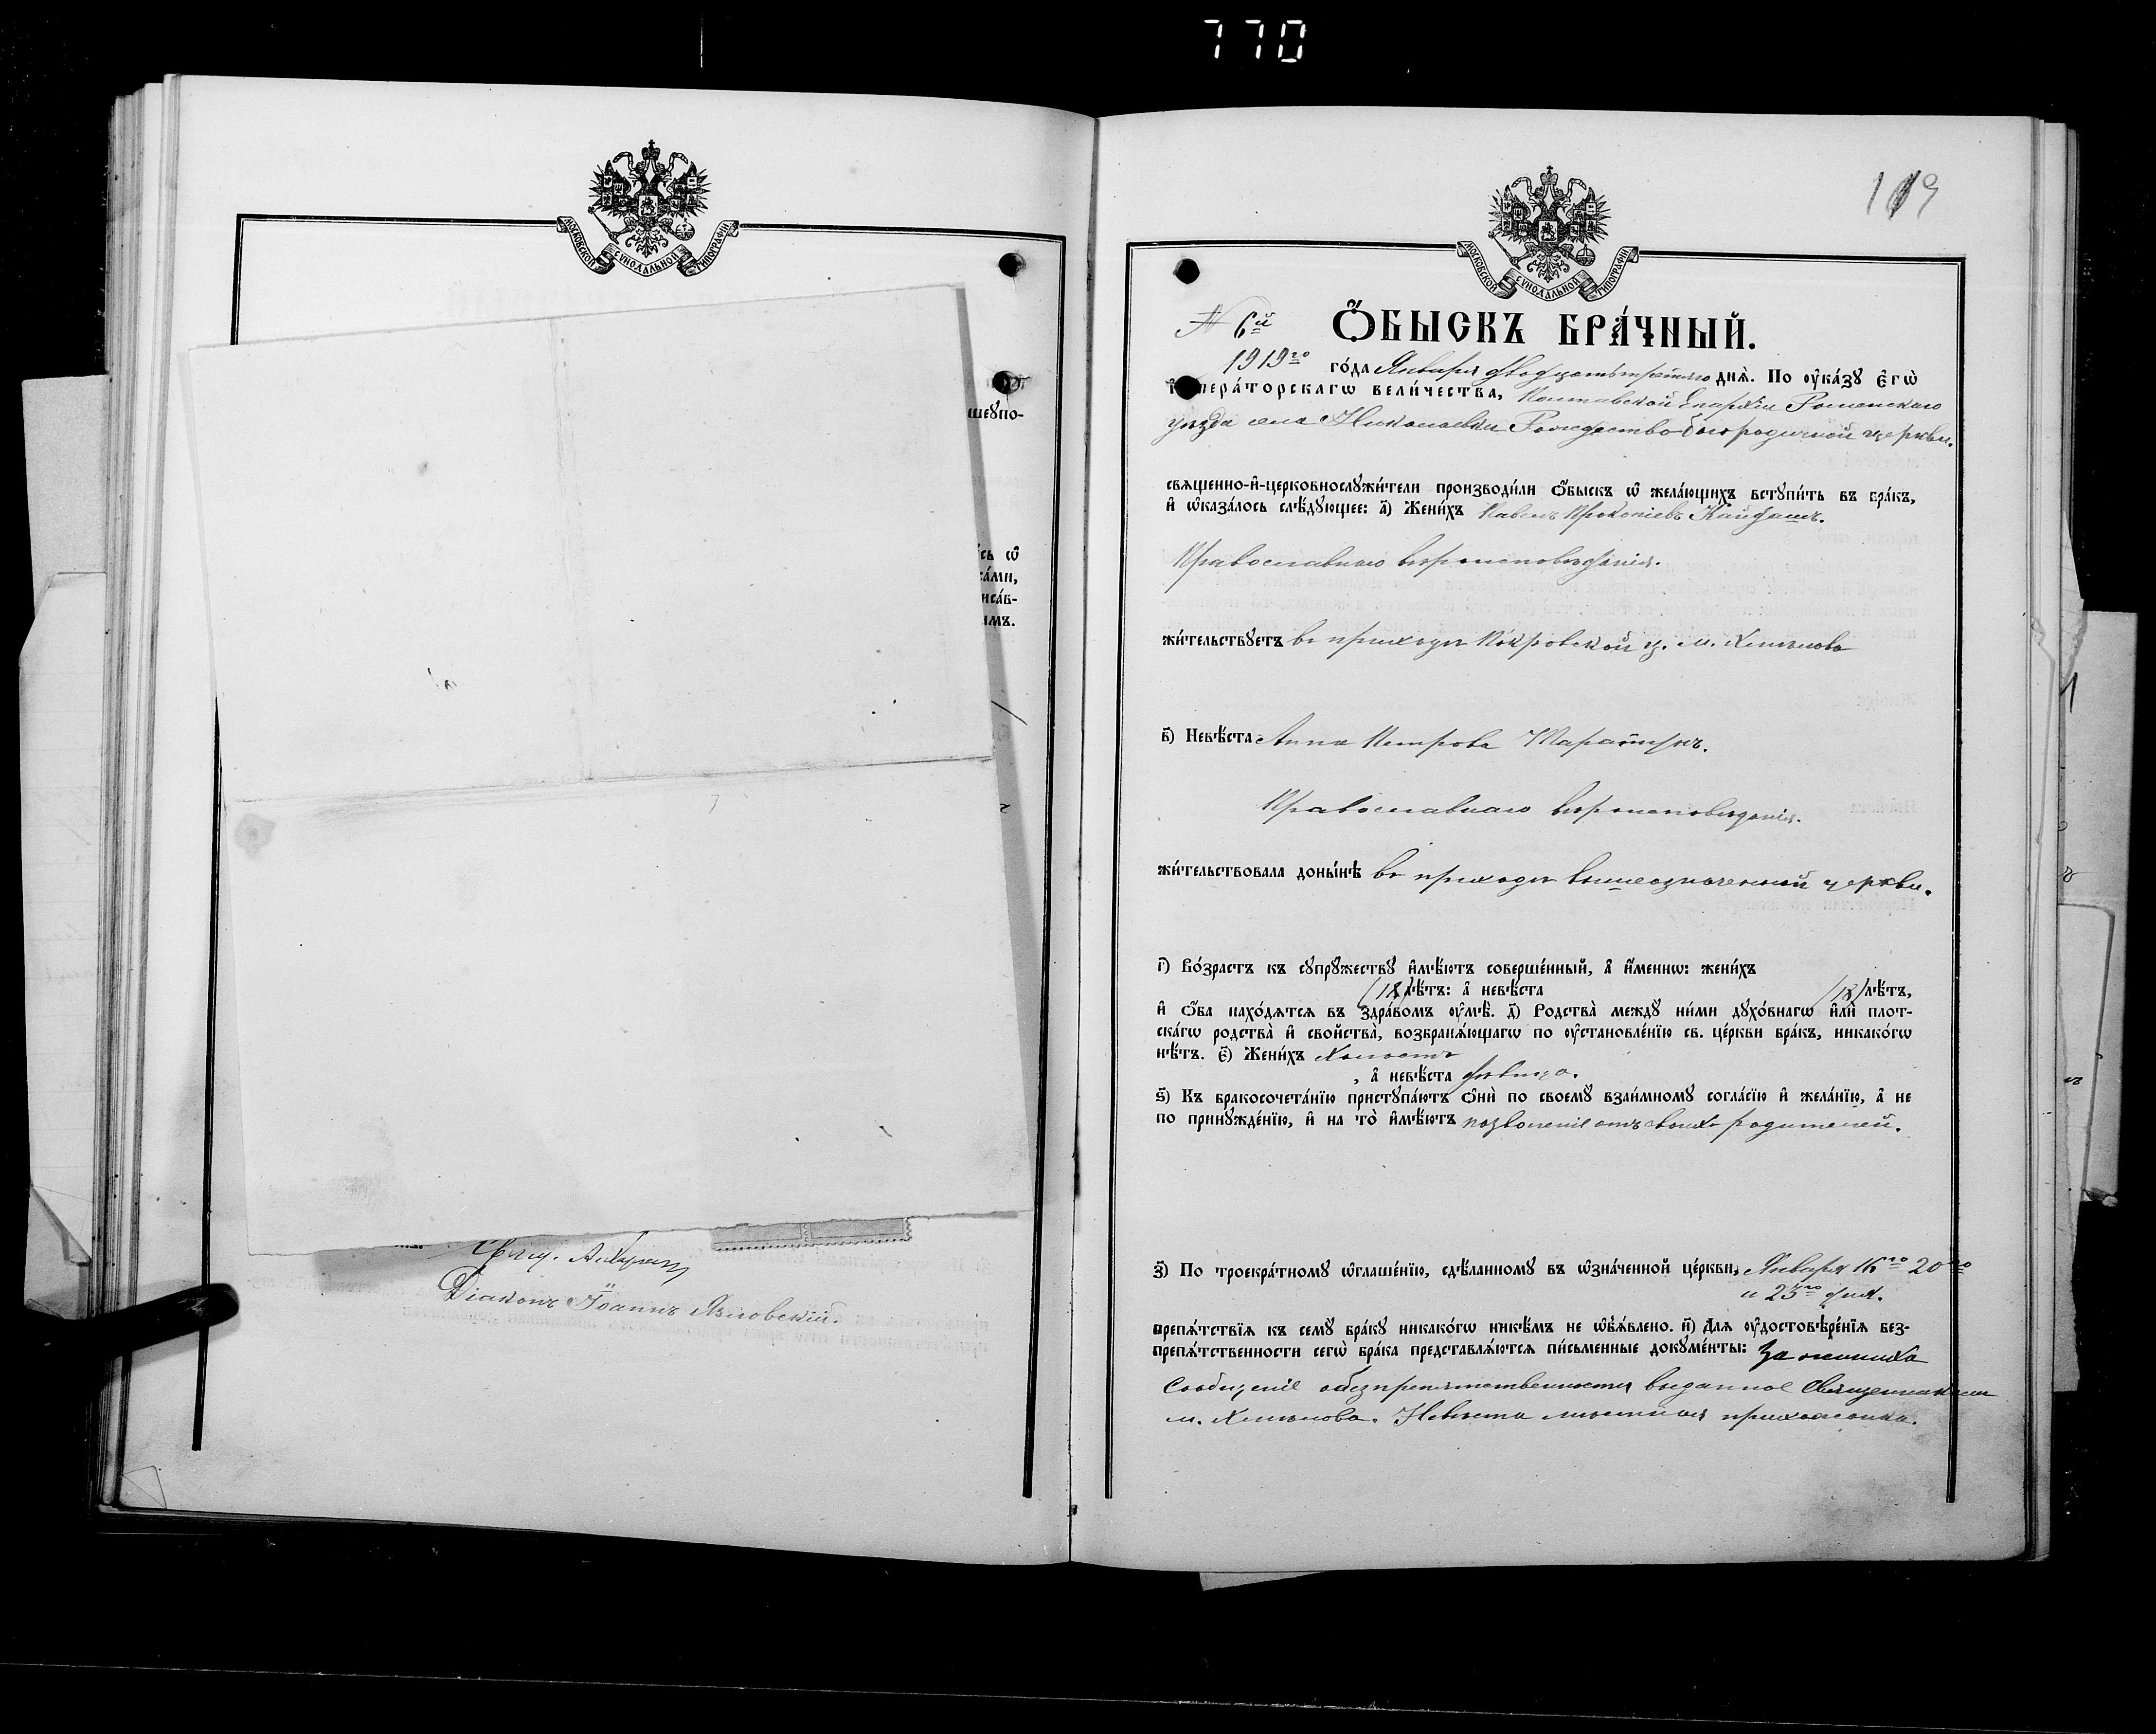 770
МОСКОВСКОЙ СѴНОДАЛЬНОЙ ТИПОГРАФІИ
шеꙋпо-
сь ѡ҆
са́ми,
писа́в-
имъ.
Свящ.
Діаконъ Іоаннъ Язловскій.
119
МОСКОВСКОЙ СѴНОДАЛЬНОЙ ТИПОГРАФІИ
№ 6й ѺБЫСКЪ БРА́ЧНЫЙ.
1919го го́да Января двадцать третьяго днѧ̀. По ᲂу҆ка́зꙋ є҆гѡ̀
и҆мпера́торскагѡ вели́чества, Полтавской Епархіи Роменскаго
уѣзда села Николаевки Рождество-Богородичной церкви.
свѧщенно-и҆-церковнослꙋжи́тели производи́ли ѻ҆́быскъ ѡ҆ жела́ющихъ встꙋпи́ть въ бра́къ,
и҆ ѡ҆каза́лось слѣ́дꙋющее: а҃) Жени́хъ Павелъ Прокопіевъ Кайдашъ.
Православнаго вѣроисповѣданія.
жи́тельствꙋетъ въ приходѣ Покровской ц. м. Хмѣлова
в҃) Невѣ́ста Анна Петрова
Православнаго вѣроисповѣданія.
жи́тельствовала доны́нѣ въ приходѣ вышеозначенной церкви.
г҃) Во́зрастъ къ сꙋпрꙋ́жествꙋ и҆мѣ́ютъ соверше́нный, а҆ и҆́меннѡ: жени́хъ
(18) лѣ́тъ: а҆ невѣ́ста (18) лѣ́тъ,
и҆ ѻ҆́ба нахо́дѧтсѧ въ здра́вомъ ᲂу҆мѣ̀. д҃) Родства̀ междꙋ̀ ни́ми дꙋхо́внагѡ и҆лѝ плот-
ска́гѡ родства̀ и҆ свойства̀, возбранѧ́ющагѡ по ᲂу҆становле́нїю св. це́ркви бра́къ, никако́гѡ
нѣ́тъ. є҃) Жени́хъ холостъ
, а҆ невѣ́ста дѣвица.
ѕ҃) Къ бракосочета́нїю пристꙋпа́ютъ ѻ҆нѝ по своемꙋ̀ взаи́мномꙋ согла́сїю и҆ жела́нїю, а҆ не
по принꙋжде́нїю, и҆ на то̀ и҆мѣ́ютъ позволеніе отъ своихъ родителей.
з҃) По троекра́тномꙋ ѡ҆глаше́нїю, сдѣ́ланномꙋ въ ѡ҆зна́ченной це́ркви, Января 16го 20го
и 23го дня.
препѧ́тствїѧ къ семꙋ̀ бра́кꙋ никако́гѡ никѣ́мъ не ѡ҆б̾ѧ́влено. и҃) Длѧ ᲂу҆достовѣре́нїѧ без-
препѧ́тственности сегѡ̀ бра́ка представлѧ́ютсѧ пи́сьменные докꙋме́нты: За жениха
Сообщеніе о безпрепятственности выданное Священникомъ
м. Хмѣлова. Невѣста мѣстная прихожанка.